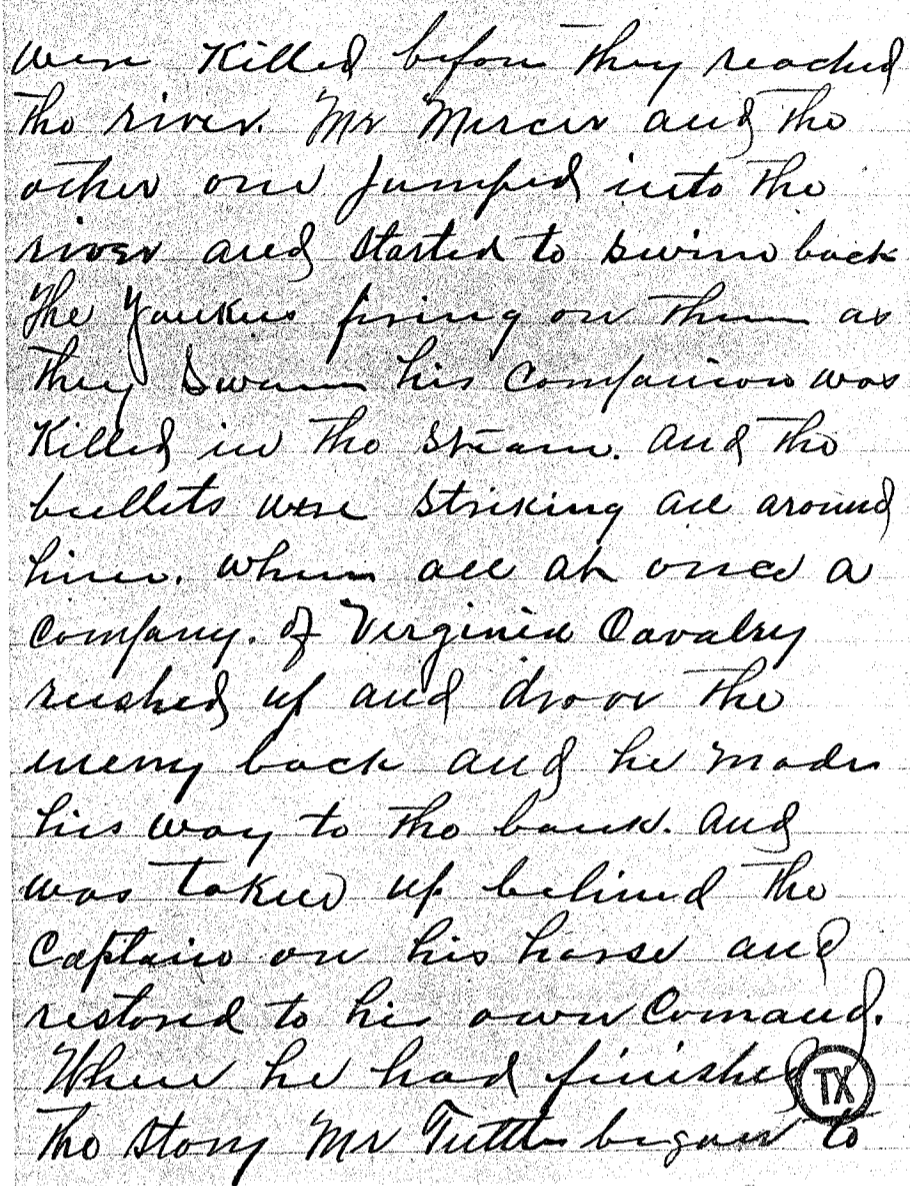 were Killed before they reached
the river. Mr Mercer and the
other one jumped into the
river and started to swim back
The Yankees firing on them as
they swam his Companion was
Killed in the stream. and the
bullets were striking all around
him. when all at once a
Company. of Virginia Cavalry
rushed up and drove the
enemy back and he made
his way to the bank. and
was taken up behind the
Captain on his horse and
restored to his own Comand.
When he had finished
TX
the story Mr Tuttle began to